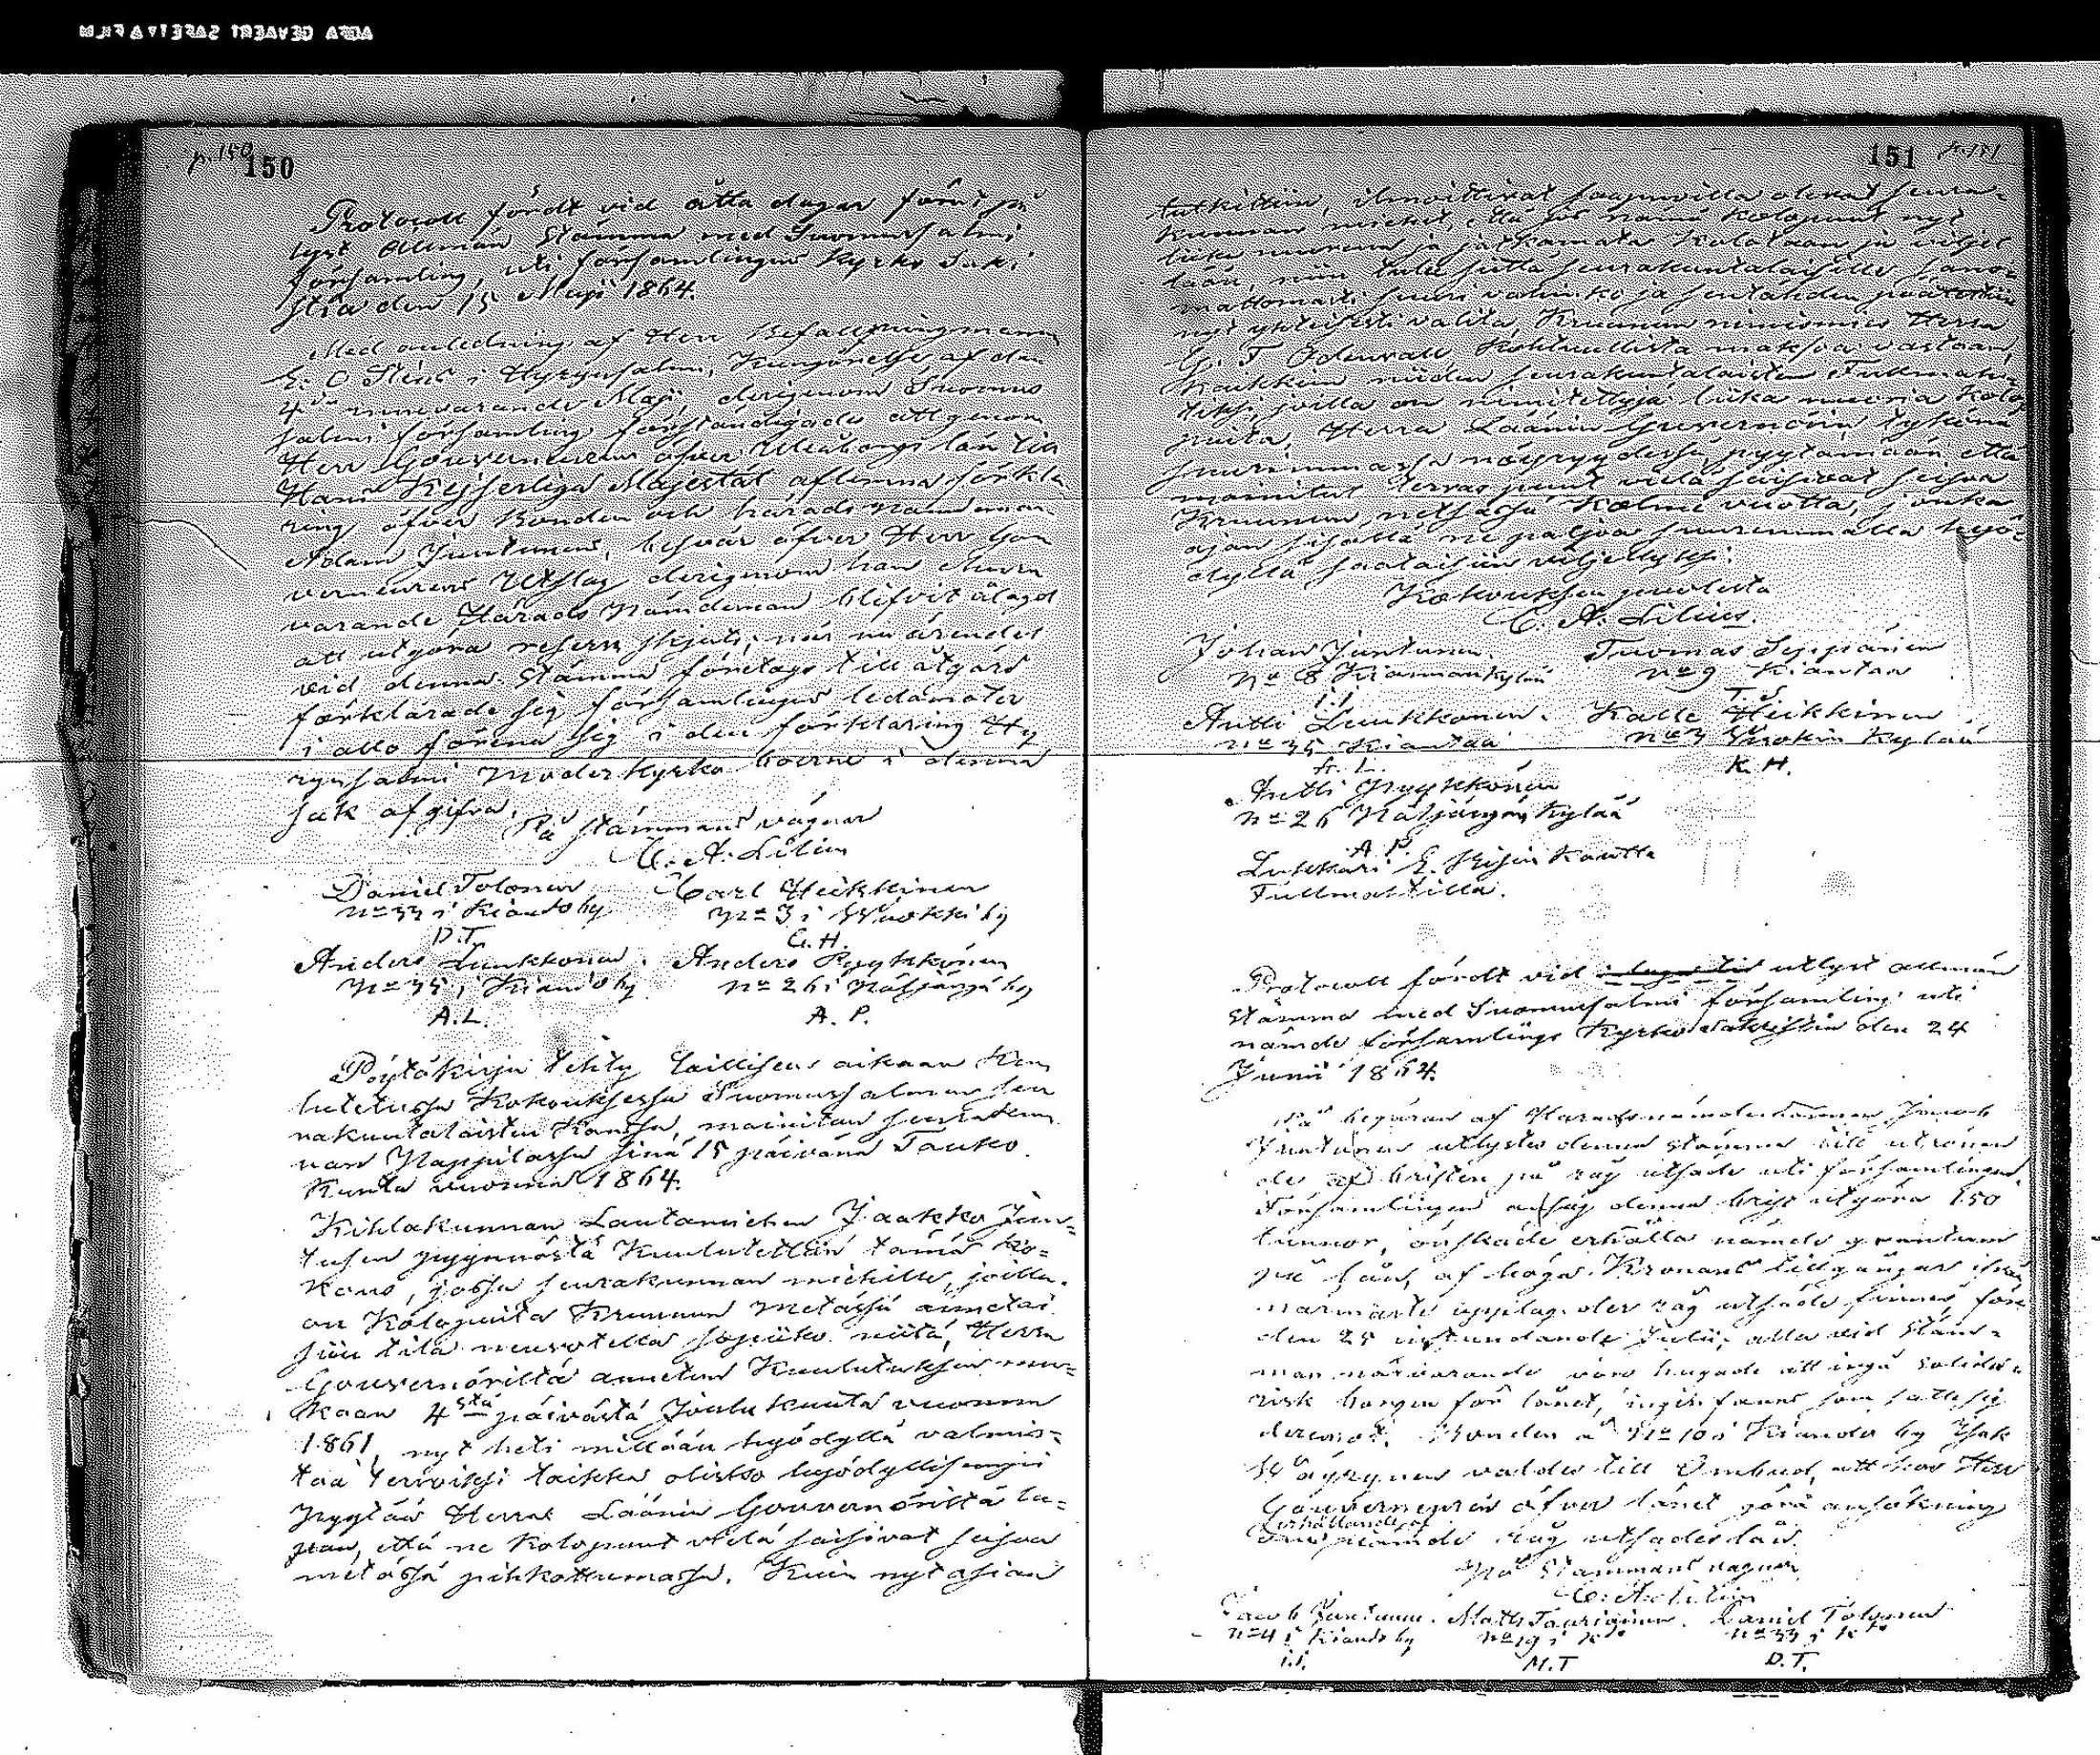 p. 150
150
Protocoll fördt vid åtta dagar förut på
lyst Allmän Stämma med Suomussalmi
församling, uti församlingens Kyrko Saki
stia den 15 Maji 1864.
Med anledning af Herr Befallningsmannen
E. O i Hyrynsalmi, Kungörelse af den
4de innevarande Maji derigenom Suomus
salmi församling förständigades att genom
Herr Gouverneuren öfver Uleåborgs län till
Hans Kejserliga Majestät aflemna förkla
ring öfver Bonden och härads nämndeman
Adam Juntunen, besvär öfver Herr Gou
verneurens Utslag derigenom han
varande Härads Nämndeman blifvit ålagd
att utgöra reserv skjuts; när nu ärendet
vid denna Stämma företogs till åtgärd
förklarade sig församlingens ledamöter
i allo förena sig i den förklaring Hy
rynsalmi Moderkyrko boerne i denna
sak afgifva.
På Stämmans vägnar
C. A. Lilius
Daniel Tolonen Carl Heikkinen
No 33 i Kianto by No 3 i Wuokki by
D.T. C.H.
Anders Luukkonen. Anders Pyykkönen
No 35 i Kianto by No 26 i Näljängä by
A.L. A. P.
Pöytäkirja tehty laillisens aikaan Kuu
lutetussa Kokouksessa Suomussalmen seu
rakuntalaisten Kanssa, mainitun seurakun
nan Kappilassa sinä 15 päivänä Touko
Kuuta vuonna 1864.
Kihlakunnan Lautamiehen Jaakko Jun=
tusen pyynnöstä Kuulutettiin tämä Ko=
kous, jossa seurakunnan miehille, joilla
on Kolopuita Kruunun Metässä annetai
siin tila neuvotella sopiiko niitä, Herra
Gouvernöriltä annetun Kuulutuksen mu=
kaan 4stä päivästä Joulu kuuta vuonna
1861, nyt heti millään hyödyllä valmis=
taa tervoiksi taikka olisko hyödyllisempi
pyytää Herra Läänin Gouvernöriltä lu=
pan, että ne Kolopuut vielä saisivat seisoa
metässä pihkottumassa. Kuin nyt asian
151 p. 151
tutkittiin, ilmoittivat saapuvilla olevat seura=
kunnan miehet, että jos nämä Kolopuut nyt
liika nuorena ja jatkamata Kolotaan ja viljel
lään, niin tulee siitä seurakuntalaisille sano=
mattomasti suuri vahinko ja sentähden päätettiin
nyt yhteisesti valita, Kruunun nimismies Herra
G. T. Odenvall Kohtuullista maksoa vastaan,
Kaikkein niiden seurakuntalaisten Fullmah=
tiksi joilla on nimitettyjä liika nuoria Kolo
puita, Herra Läänin Guvernörin tykönä
suurimmassa nöyryydessä pyytämään että
mainitut tervas puut vielä saisivat seisoa
Kruunun metsässä Kolme vuotta, jonka
ajan sisällä ne paljoa suuremmalla hyö=
dyllä saataisiin viljellyksi.
Kokouksen puolesta
C. A. Lilius.
Johan Juntunen. Tuomas Seppänen
No 8 Kiannankylää No 9 Kiantaa
I.I T. S
Antti Luukkonen. Kalle Heikkinen
No 35 Kiantaa No 3 Wuokin Kylää
A. L. K. H.
Antti Pyykkönen
No 26 Näljängän Kylää
A P.
Lukkari E. Kautta
Fullmahtilla.
Protocoll fördt vid utlyst allmän
Stämma med Suomussalmi församling uti
nämde församlings Kyrko Sakristia den 24
Junii 1864.
På begäran af Haradsnämndemannen Jacob
Juntunen utlystes denna Stämma till utrönan
de af bristen på råg utsäde uti församlingen
Församlingen ansåg denna brist utgöra 150
tunnor, önskade erhålla nämde quantum
på lån, af höga Kronans tillgångar ifrån
närmaste upplag der råg utsäde finnes, före
den 25 instundande Julii; alla vid Stäm=
man närvarande voro hugade att ingå solida=
risk borgen för lånet, ingen fanns som satte sig
deremot. Bonden å No 10 i Kianto by Isak
Wäyrynen valdes till Ombud, att hos Herr
Gouverneuren öfver länet göra ansökning
erhållande af
om nämde råg utsädes lån.
På Stämmans vägnar
C. A. Lilius
Jacob Juntunen. Matts Tauriainen. Daniel Tolonen
No 4 i Kianto by No 19 i Kto No 33 i Kto
I.I. M.T D.T.